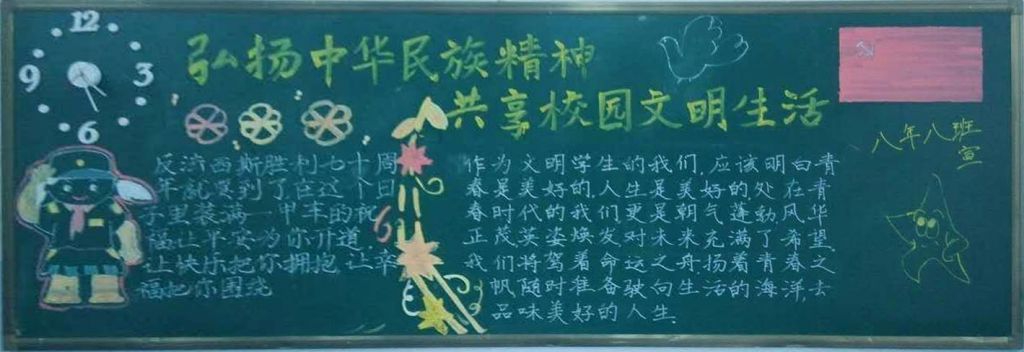 12
9
3
6
弘扬中华民族精神
共享校园文明生活
八年八班
宣
反法西斯胜利七十周
年就要到了在这个日
子里装满一甲车的祝
福让平安为你开道
让快乐把你拥抱让幸
福把你围绕
作为文明学生的我们,应该明白青
春是美好的,人生是美好的处在青
春时代的我们更是朝气蓬勃风华
正茂英姿焕发对未来充满了希望
我们将驾着命运之舟扬着青春之
帆随时准备驶向生活的海洋,去
品味美好的人生